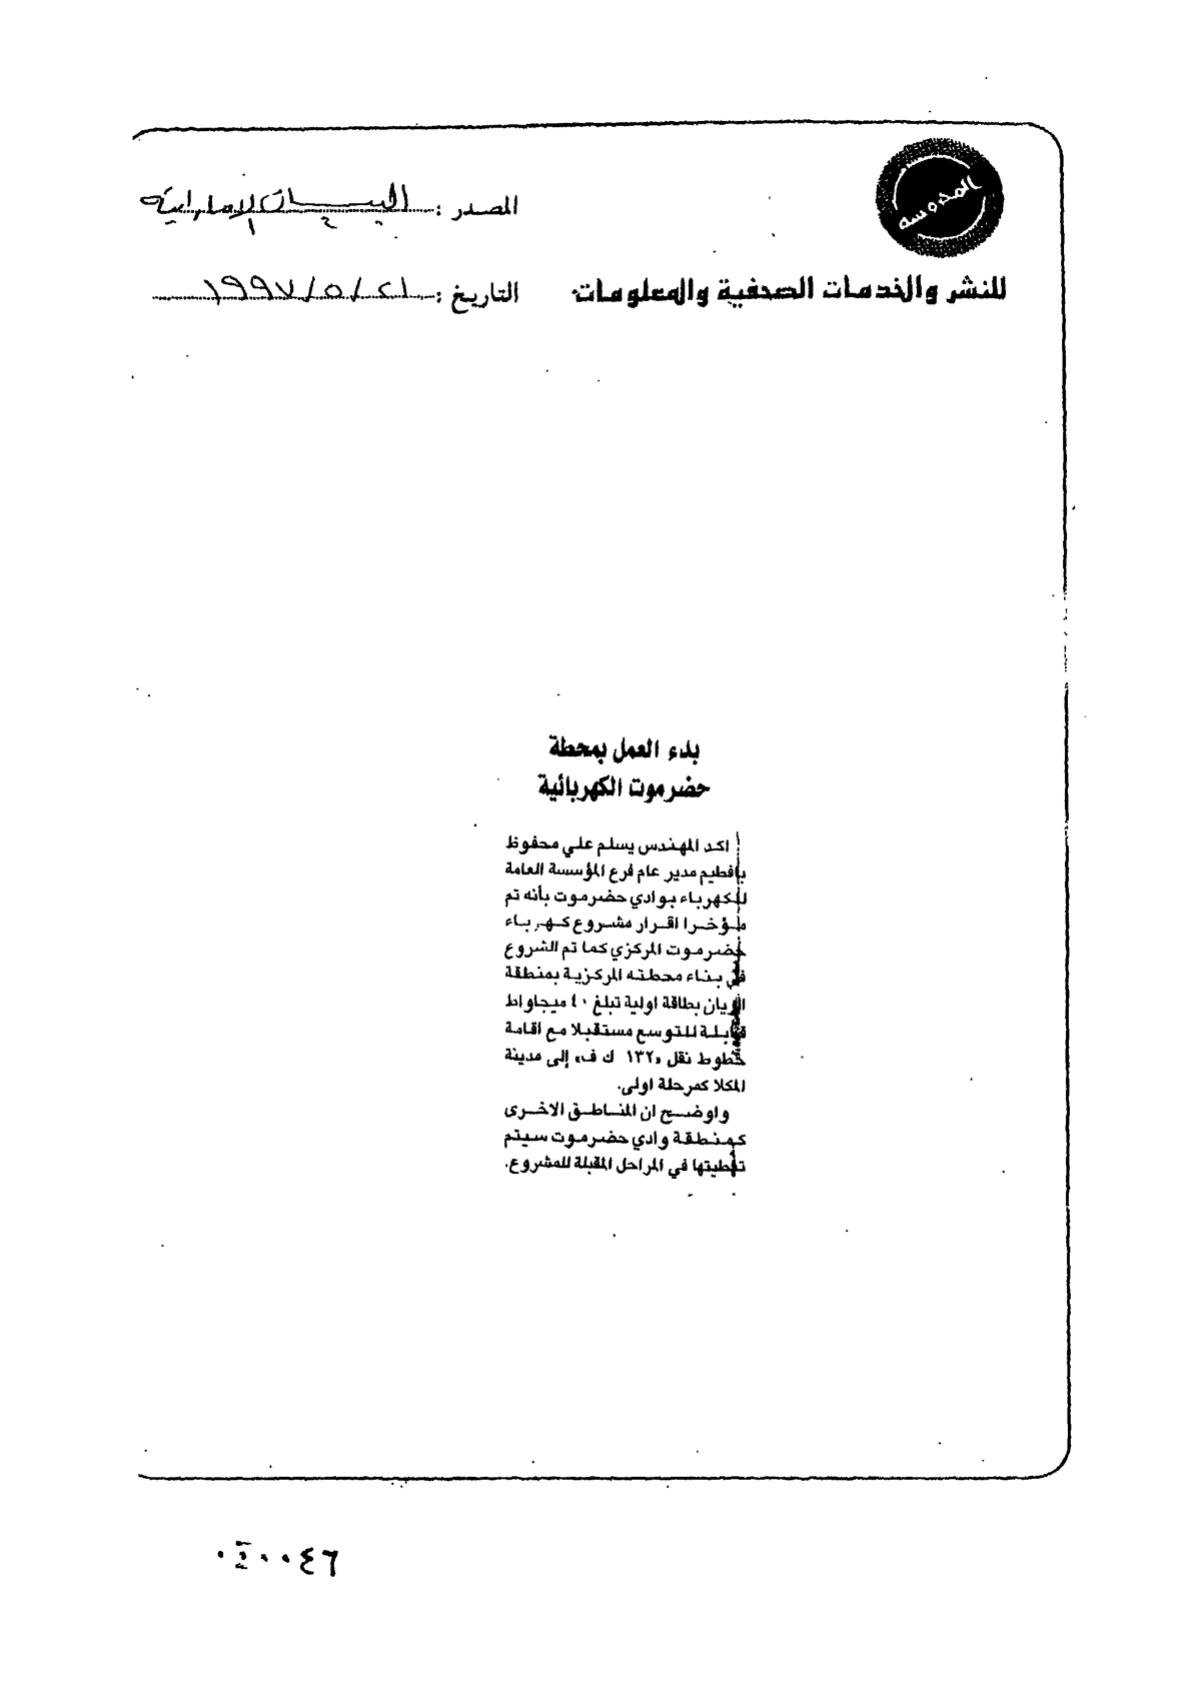 المحروسة
المصدر : البيان الإماراتية
للنشر والخدمات الصحفية والمعلومات
التاريخ : ٢١/٥/١٩٩٧
بدء العمل بمحطة
حضرموت الكهربائية
اكد المهندس يسلم علي محفوظ
بافطيم مدير عام فرع المؤسسة العامة
للكهرباء بوادي حضرموت بأنه تم
مؤخرا اقرار مشروع كهرباء
حضرموت المركزي كما تم الشروع
في بناء محطته المركزية بمنطقة
الريان بطاقة اولية تبلغ ٤٠ ميجاواط
قابلة للتوسع مستقبلا مع اقامة
خطوط نقل «١٣٢ ك ف» إلى مدينة
المكلا كمرحلة اولى.
واوضح ان المناطق الاخرى
كمنطقة وادي حضرموت سيتم
تغطيتها في المراحل المقبلة للمشروع.